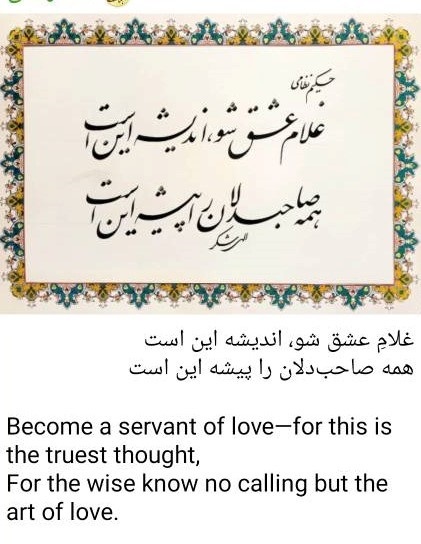 حکیم نظامی
غلام عشق شو، اندیشه این است
همه صاحبدلان را پیشه این است
غلامِ عشق شو، اندیشه این است
همه صاحب‌دلان را پیشه این است
Become a servant of love—for this is
the truest thought,
For the wise know no calling but the
art of love.